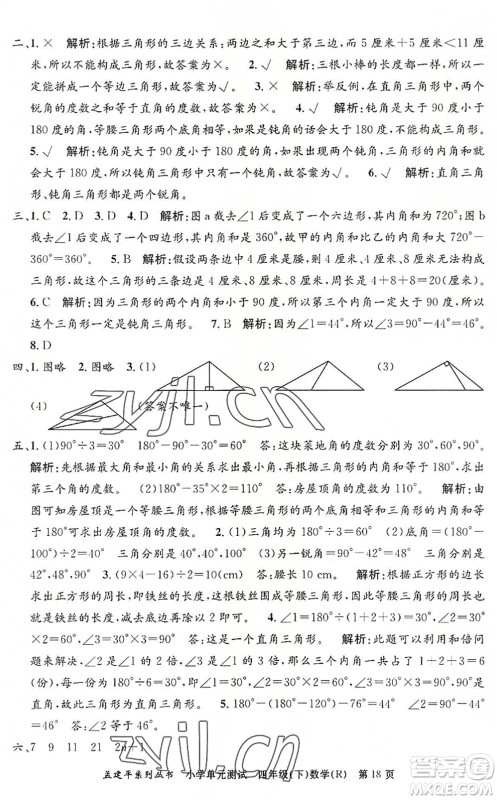 二、1. × 解析:根据三角形的三边关系:两边之和大于第三边,因为4厘米+5厘米<11厘
米,所以不能构成三角形,故答案为×。 2. √ 解析:三根小棒的长度相等,能构成三角形,
一定能构成等边三角形,故答案为√。 3. × 解析:举反例,在直角三角形中,两个
锐角的度数之和等于直角的度数,故答案为×。 4. √ 解析:钝角是大于90度小于
180度的角,等腰三角形两个底角的度数相等,如果底角大于90度,则两个底角的和大于
180度,不能构成三角形,故答案为√。 5. √ 解析:钝角大于90度小于180度,
所以钝角三角形中另外两个锐角的和小于90度,故答案为√。 6. √ 解析:直角三角
形、钝角三角形中都有两个锐角。
三、1. C 2. D 3. D 4. D 解析:图a我去∠1后变成一个六边形,其内角和为720°;图b
我去∠1后变成一个四边形,其内角和为360°,故甲的内角和比乙的内角和大720°
-360°=360°。 5. B 解析:假设4厘米是腰,则因为4厘米、4厘米、8厘米无法构成三
角形,所以这个三角形的三边是4厘米、8厘米、8厘米,周长是4+8+8=20(厘米)。
6. C 解析:因为∠1=∠2+∠3,所以∠1=180°÷2=90°,∠2和∠3一定小于90°,所以
这个三角形一定是直角三角形。 7. B 解析:因为∠1=48°,∠2=38°,则∠3=94°,所
以这个三角形是钝角三角形。
8. D
四、1. 图略 2. 图略 3. (1) (2) (3)
(4) (答案不唯一)
五、1. (1)90°÷3=30° 180°-90°-30°=60° 答:这块菜地角的度数分别为30°、60°、90°。
解析:先根据最大角的度数和最大角与最小角的关系求出最小角的度数,再求出
第三个角的度数。 (2)(180°-100°)÷2=40° 答:它的底角是40°。 解析:由
图可知房屋顶是一个等腰三角形,已知房屋顶角的度数,根据三角形的内角和等
于180°可以求出房屋底角的度数。 2. (1)三角均为180°÷3=60° (2)180°-
100°-48°=32° (3)(180°-90°)÷2=45° (3)另一锐角180°-90°-42°=48°
3. (9×4-16)÷2=10(cm) 答:一条腰长10厘米。 解析:根据正方形的边长求
出正方形的周长,即铁丝的长度,这根铁丝围成等腰三角形,用铁丝的长度减去底边
的长度再除以2即可。 4. 90° 解析:∠2=90°-45°=45° ∠1=180°-45°-
45°=90° 5. 180°÷2=90° 答:这是一个直角三角形。 6. 30° 90° 60°
解析:∠2是∠1的3倍,∠3是∠1的2倍,那么∠1、∠2和∠3总共是1+2+3=6
(份),每份为180°÷6=30°,则∠1=30°,∠2=30°×3=90°,∠3=30°×2=60°。
六、7 9 11 21 2n+1
孟建平系列丛书 小学单元测试 四年级(下)数学(R) 第18页
zyjl.cn